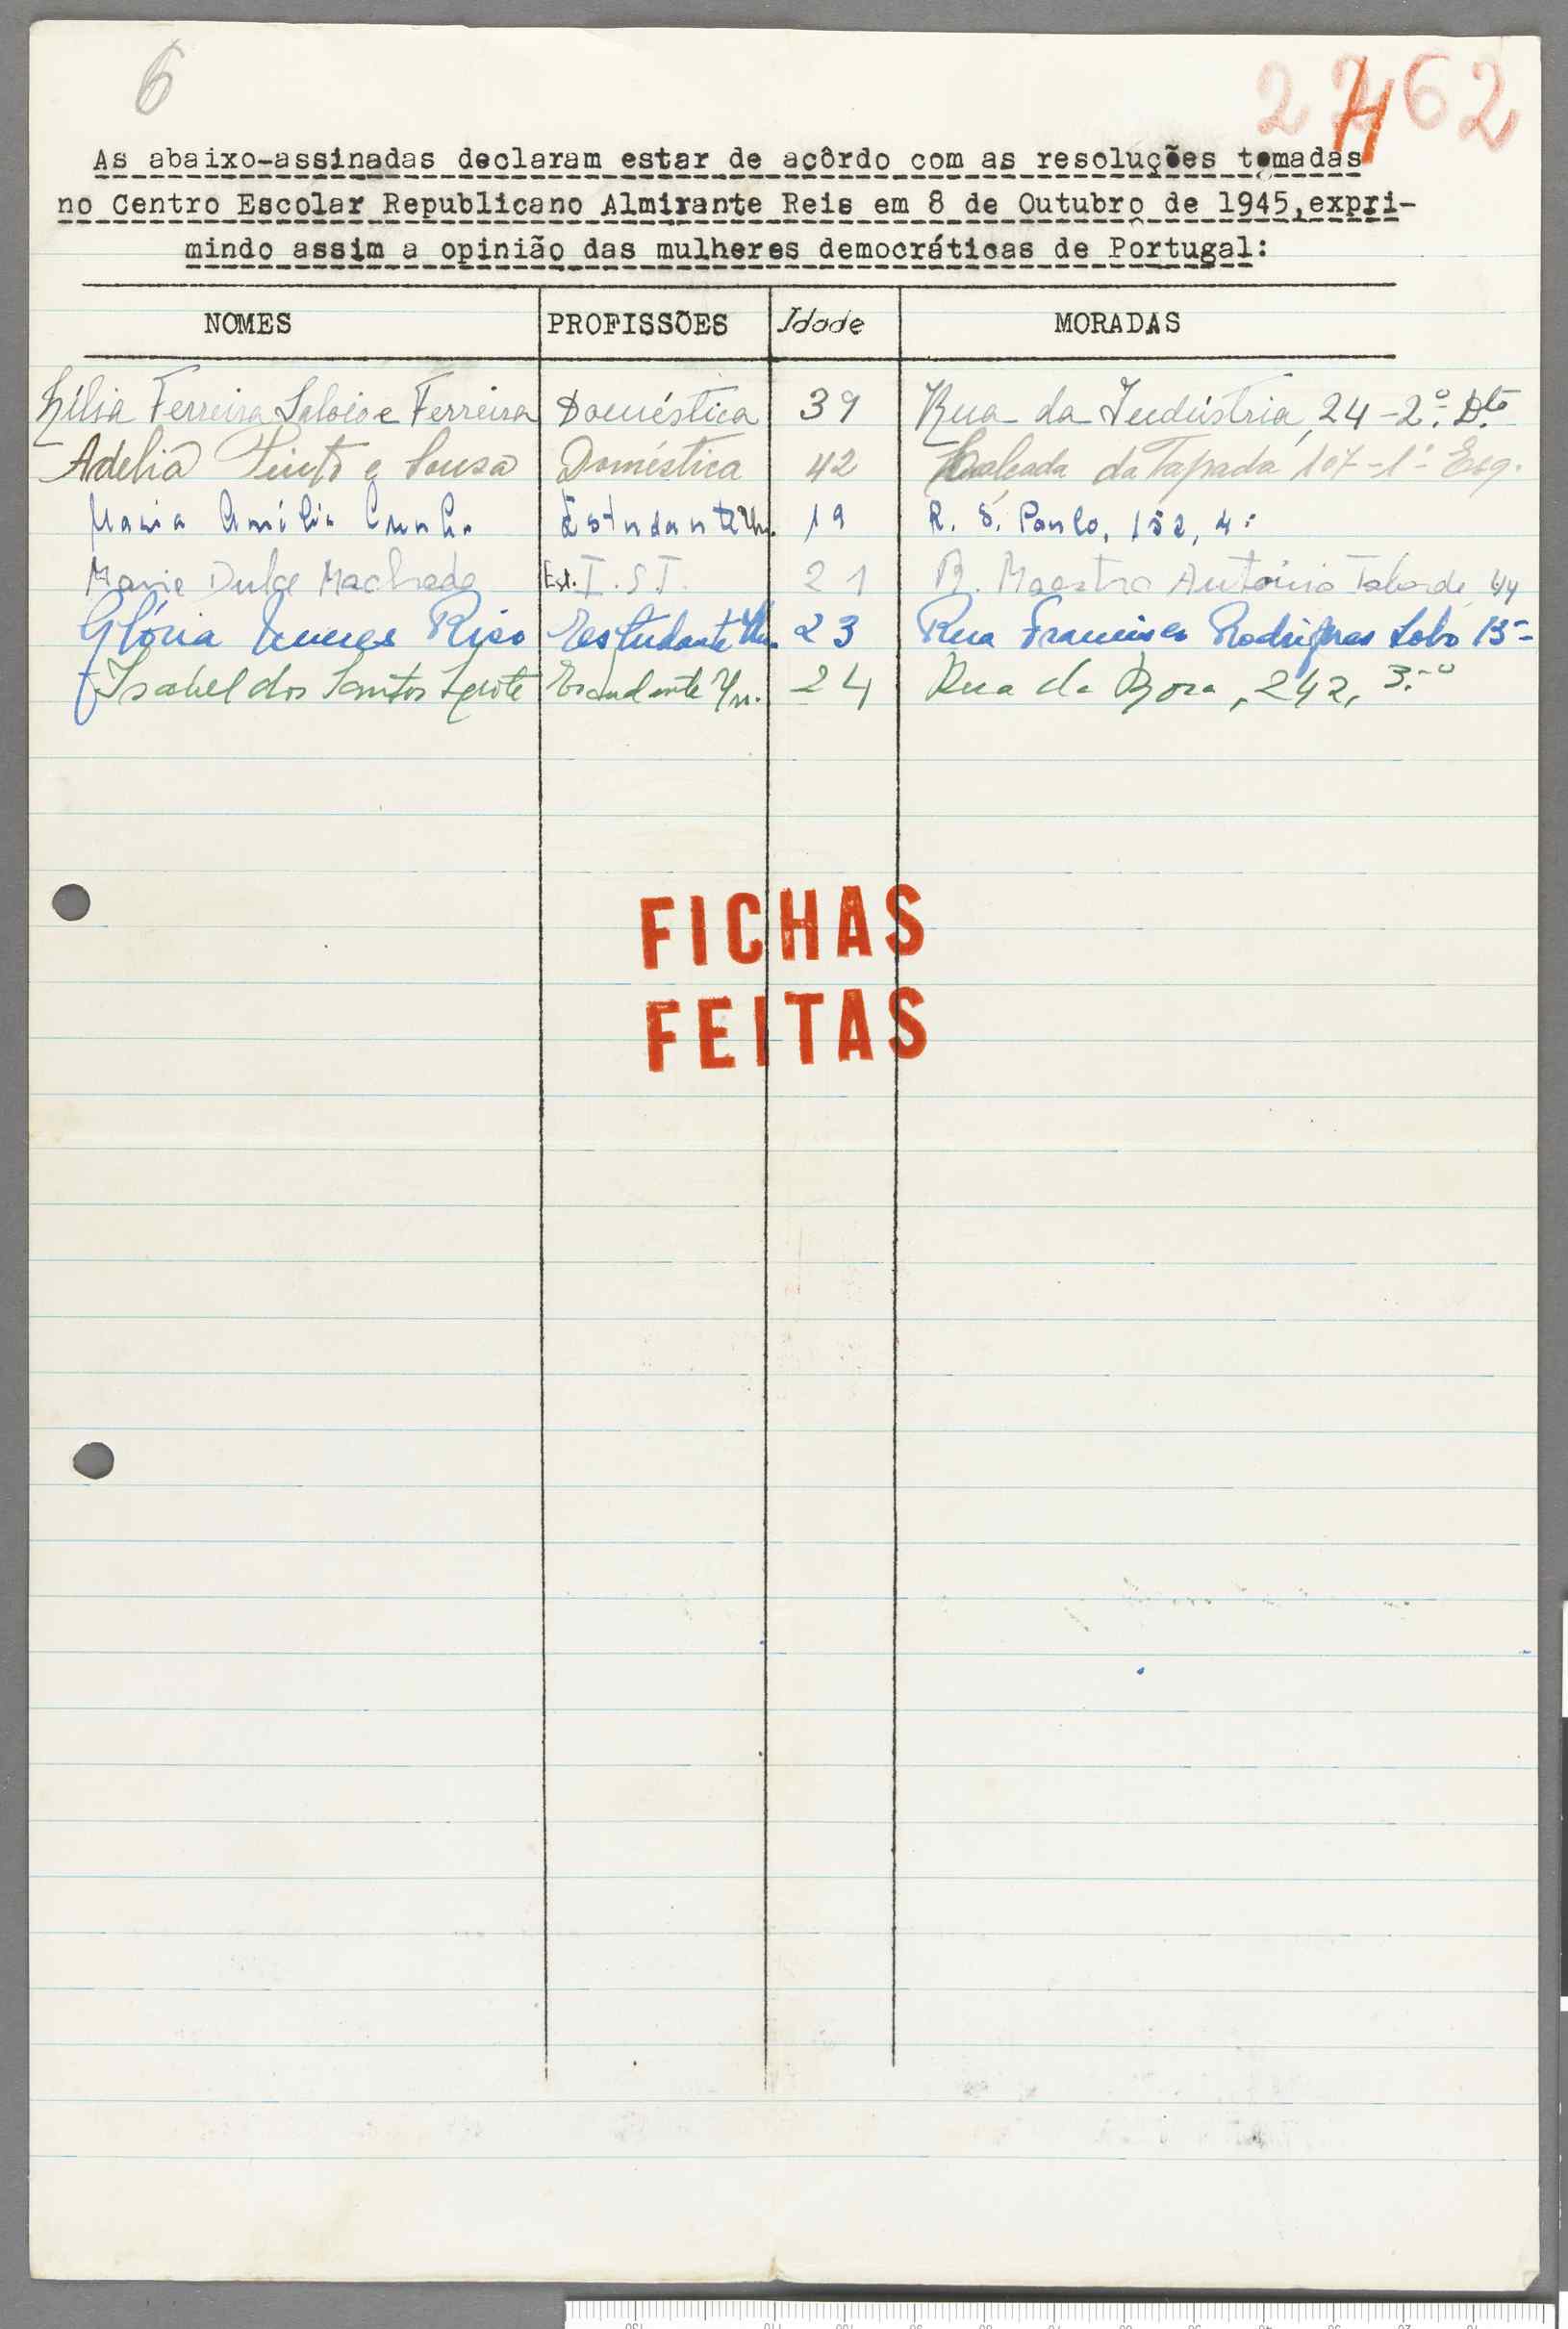 6
2762
As abaixo-assinadas declaram estar de acôrdo com as resoluções tomadas
no Centro Escolar Republicano Almirante Reis em 8 de Outubro de 1945,expri-
mindo assim a opinião das mulheres democráticas de Portugal:
NOMES PROFISSÕES Idade MORADAS
Ferreira e Ferreira Doméstica 39 Rua da Indústria, 24-2.º Dto
Adelia Pinto e Sousa Doméstica 42 Calçada da Tapada 107-1º Esq.
Maria Amélia Cunha Estudante Un. 19 R. S. Paulo, 152, 4º
Maria Dulce Machado Est. I.S.T. 21 R. Maestro António Taborda
Glória Nunes Riso Estudante Un. 23 Rua Francisco Rodrigues Lobo 15
Isabel dos Santos Estudante Un. 24 Rua da Rosa, 242, 3.º
FICHAS
FEITAS